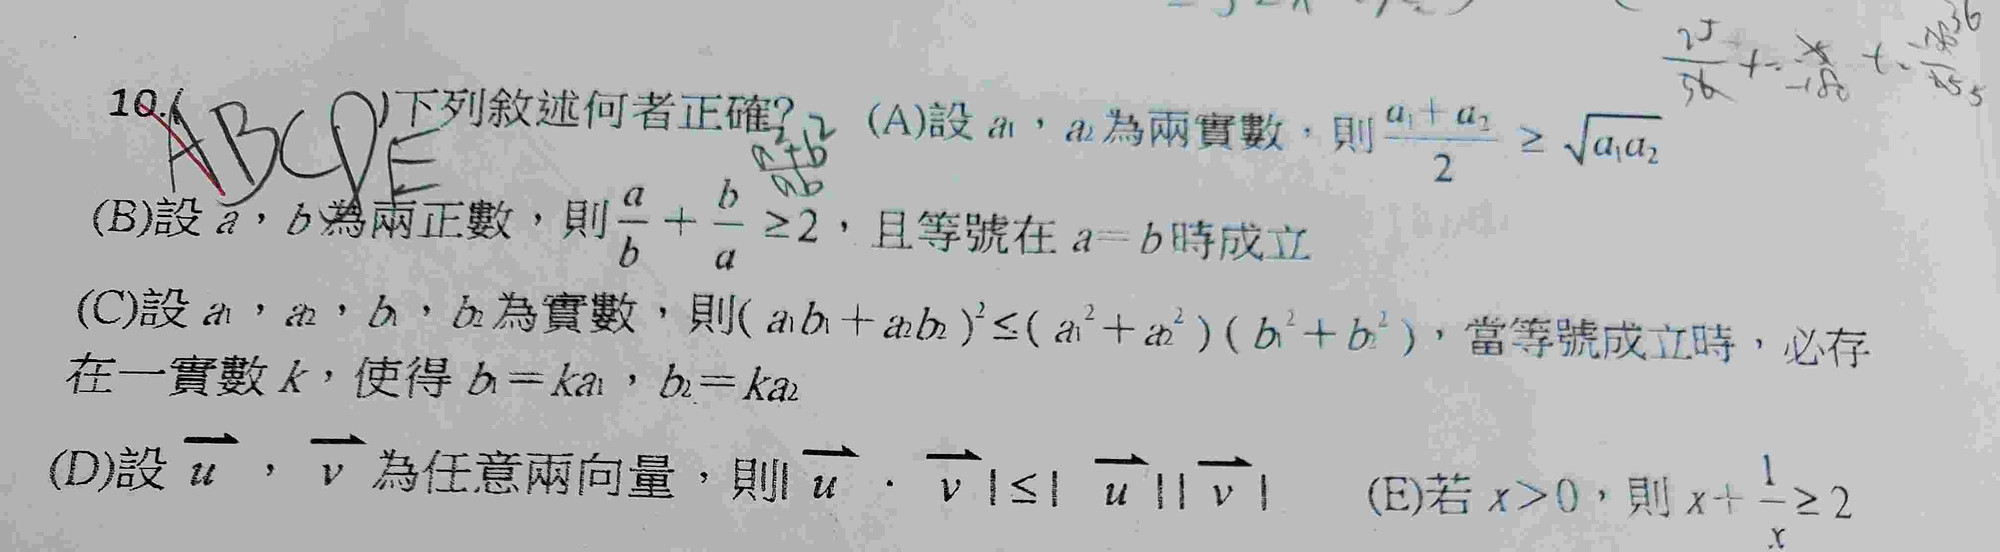 10.(ABCDE)下列敘述何者正確? (A)設 a₁，a₂為兩實數，則 (a₁+a₂)/2 ≥ √(a₁a₂)
a²+b²/ab
(B)設 a，b為兩正數，則 a/b + b/a ≥2，且等號在 a=b時成立
(C)設 a₁，a₂，b₁，b₂為實數，則( a₁b₁+a₂b₂ )²≤( a₁²+a₂² ) ( b₁²+b₂² )，當等號成立時，必存
在一實數 k，使得 b₁=ka₁，b₂=ka₂
(D)設 u⃗ ， v⃗ 為任意兩向量，則| u⃗ · v⃗ |≤| u⃗ || v⃗ | (E)若 x>0，則 x+ 1/x ≥ 2